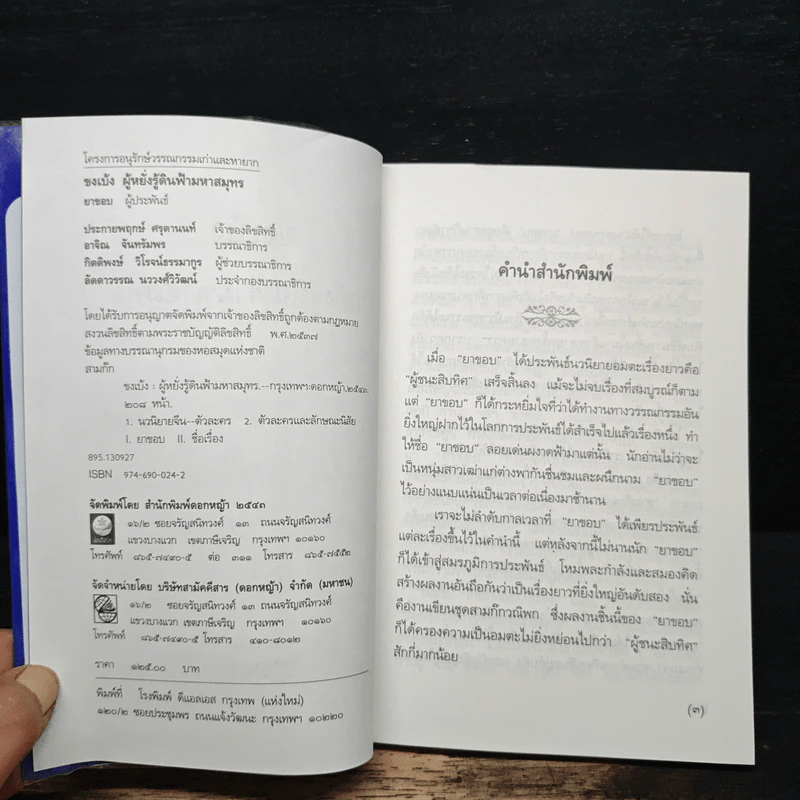 โครงการอนุรักษ์วรรณกรรมเก่าและหายาก
ขงเบ้ง ผู้หยั่งรู้ดินฟ้ามหาสมุทร
ยาขอบ ผู้ประพันธ์
ประกายพฤกษ์ ศรุตานนท์ เจ้าของลิขสิทธิ์
อาจิณ จันทรัมพร บรรณาธิการ
กิตติพงษ์ วิโรจน์ธรรมากูร ผู้ช่วยบรรณาธิการ
ลัดดาวรรณ นววงศ์วิวัฒน์ ประจำกองบรรณาธิการ
โดยได้รับการอนุญาตจัดพิมพ์จากเจ้าของลิขสิทธิ์ถูกต้องตามกฎหมาย
สงวนลิขสิทธิ์ตามพระราชบัญญัติลิขสิทธิ์ พ.ศ.๒๕๓๗
ข้อมูลทางบรรณานุกรมของหอสมุดแห่งชาติ
สามก๊ก
ขงเบ้ง : ผู้หยั่งรู้ดินฟ้ามหาสมุทร.--กรุงเทพฯ:ดอกหญ้า,๒๕๔๓.
๒๐๘ หน้า.
1. นวนิยายจีน--ตัวละคร 2. ตัวละครและลักษณะนิสัย
I. ยาขอบ II. ชื่อเรื่อง
895.130927
ISBN 974-690-024-2
จัดพิมพ์โดย สำนักพิมพ์ดอกหญ้า ๒๕๔๓
๑๖/๒ ซอยจรัญสนิทวงศ์ ๑๓ ถนนจรัญสนิทวงศ์
แขวงบางแวก เขตภาษีเจริญ กรุงเทพฯ ๑๐๑๖๐
โทรศัพท์ ๘๖๕-๗๔๙๐-๕ ต่อ ๓๑๑ โทรสาร ๘๖๕-๗๕๕๒
จัดจำหน่ายโดย บริษัทสามัคคีสาร (ดอกหญ้า) จำกัด (มหาชน)
๑๖/๒ ซอยจรัญสนิทวงศ์ ๑๓ ถนนจรัญสนิทวงศ์
แขวงบางแวก เขตภาษีเจริญ กรุงเทพฯ ๑๐๑๖๐
โทรศัพท์ ๘๖๕-๗๔๙๐-๕ โทรสาร ๔๑๐-๘๐๑๒
ราคา ๑๒๕.๐๐ บาท
พิมพ์ที่ โรงพิมพ์ ดีแอลเอส กรุงเทพ (แห่งใหม่)
๑๒๐/๒ ซอยประชุมพร ถนนแจ้งวัฒนะ กรุงเทพฯ ๑๐๒๒๐
คำนำสำนักพิมพ์
เมื่อ "ยาขอบ" ได้ประพันธ์นวนิยายอมตะเรื่องยาวคือ
"ผู้ชนะสิบทิศ" เสร็จสิ้นลง แม้จะไม่จบเรื่องที่สมบูรณ์ก็ตาม
แต่ "ยาขอบ" ก็ได้กระหยิ่มใจที่ว่าได้ทำงานทางวรรณกรรมอัน
ยิ่งใหญ่ฝากไว้ในโลกการประพันธ์ได้สำเร็จไปแล้วเรื่องหนึ่ง ทำ
ให้ชื่อ "ยาขอบ" ลอยเด่นผงาดฟ้ามาแต่นั้น นักอ่านไม่ว่าจะ
เป็นหนุ่มสาวเฒ่าแก่ต่างพากันชื่นชมและผนึกนาม "ยาขอบ"
ไว้อย่างแนบแน่นเป็นเวลาต่อเนื่องมาช้านาน
เราจะไม่ลำดับกาลเวลาที่ "ยาขอบ" ได้เพียรประพันธ์
แต่ละเรื่องขึ้นไว้ในคำนำนี้ แต่หลังจากนี้ไม่นานนัก "ยาขอบ"
ก็ได้เข้าสู่สมรภูมิการประพันธ์ โหมพละกำลังและสมองคิด
สร้างผลงานอันถือกันว่าเป็นเรื่องยาวที่ยิ่งใหญ่อันดับสอง นั่น
คืองานเขียนชุดสามก๊กวณิพก ซึ่งผลงานชิ้นนี้ของ "ยาขอบ"
ก็ได้ครองความเป็นอมตะไม่ยิ่งหย่อนไปกว่า "ผู้ชนะสิบทิศ"
สักกี่มากน้อย
(๓)